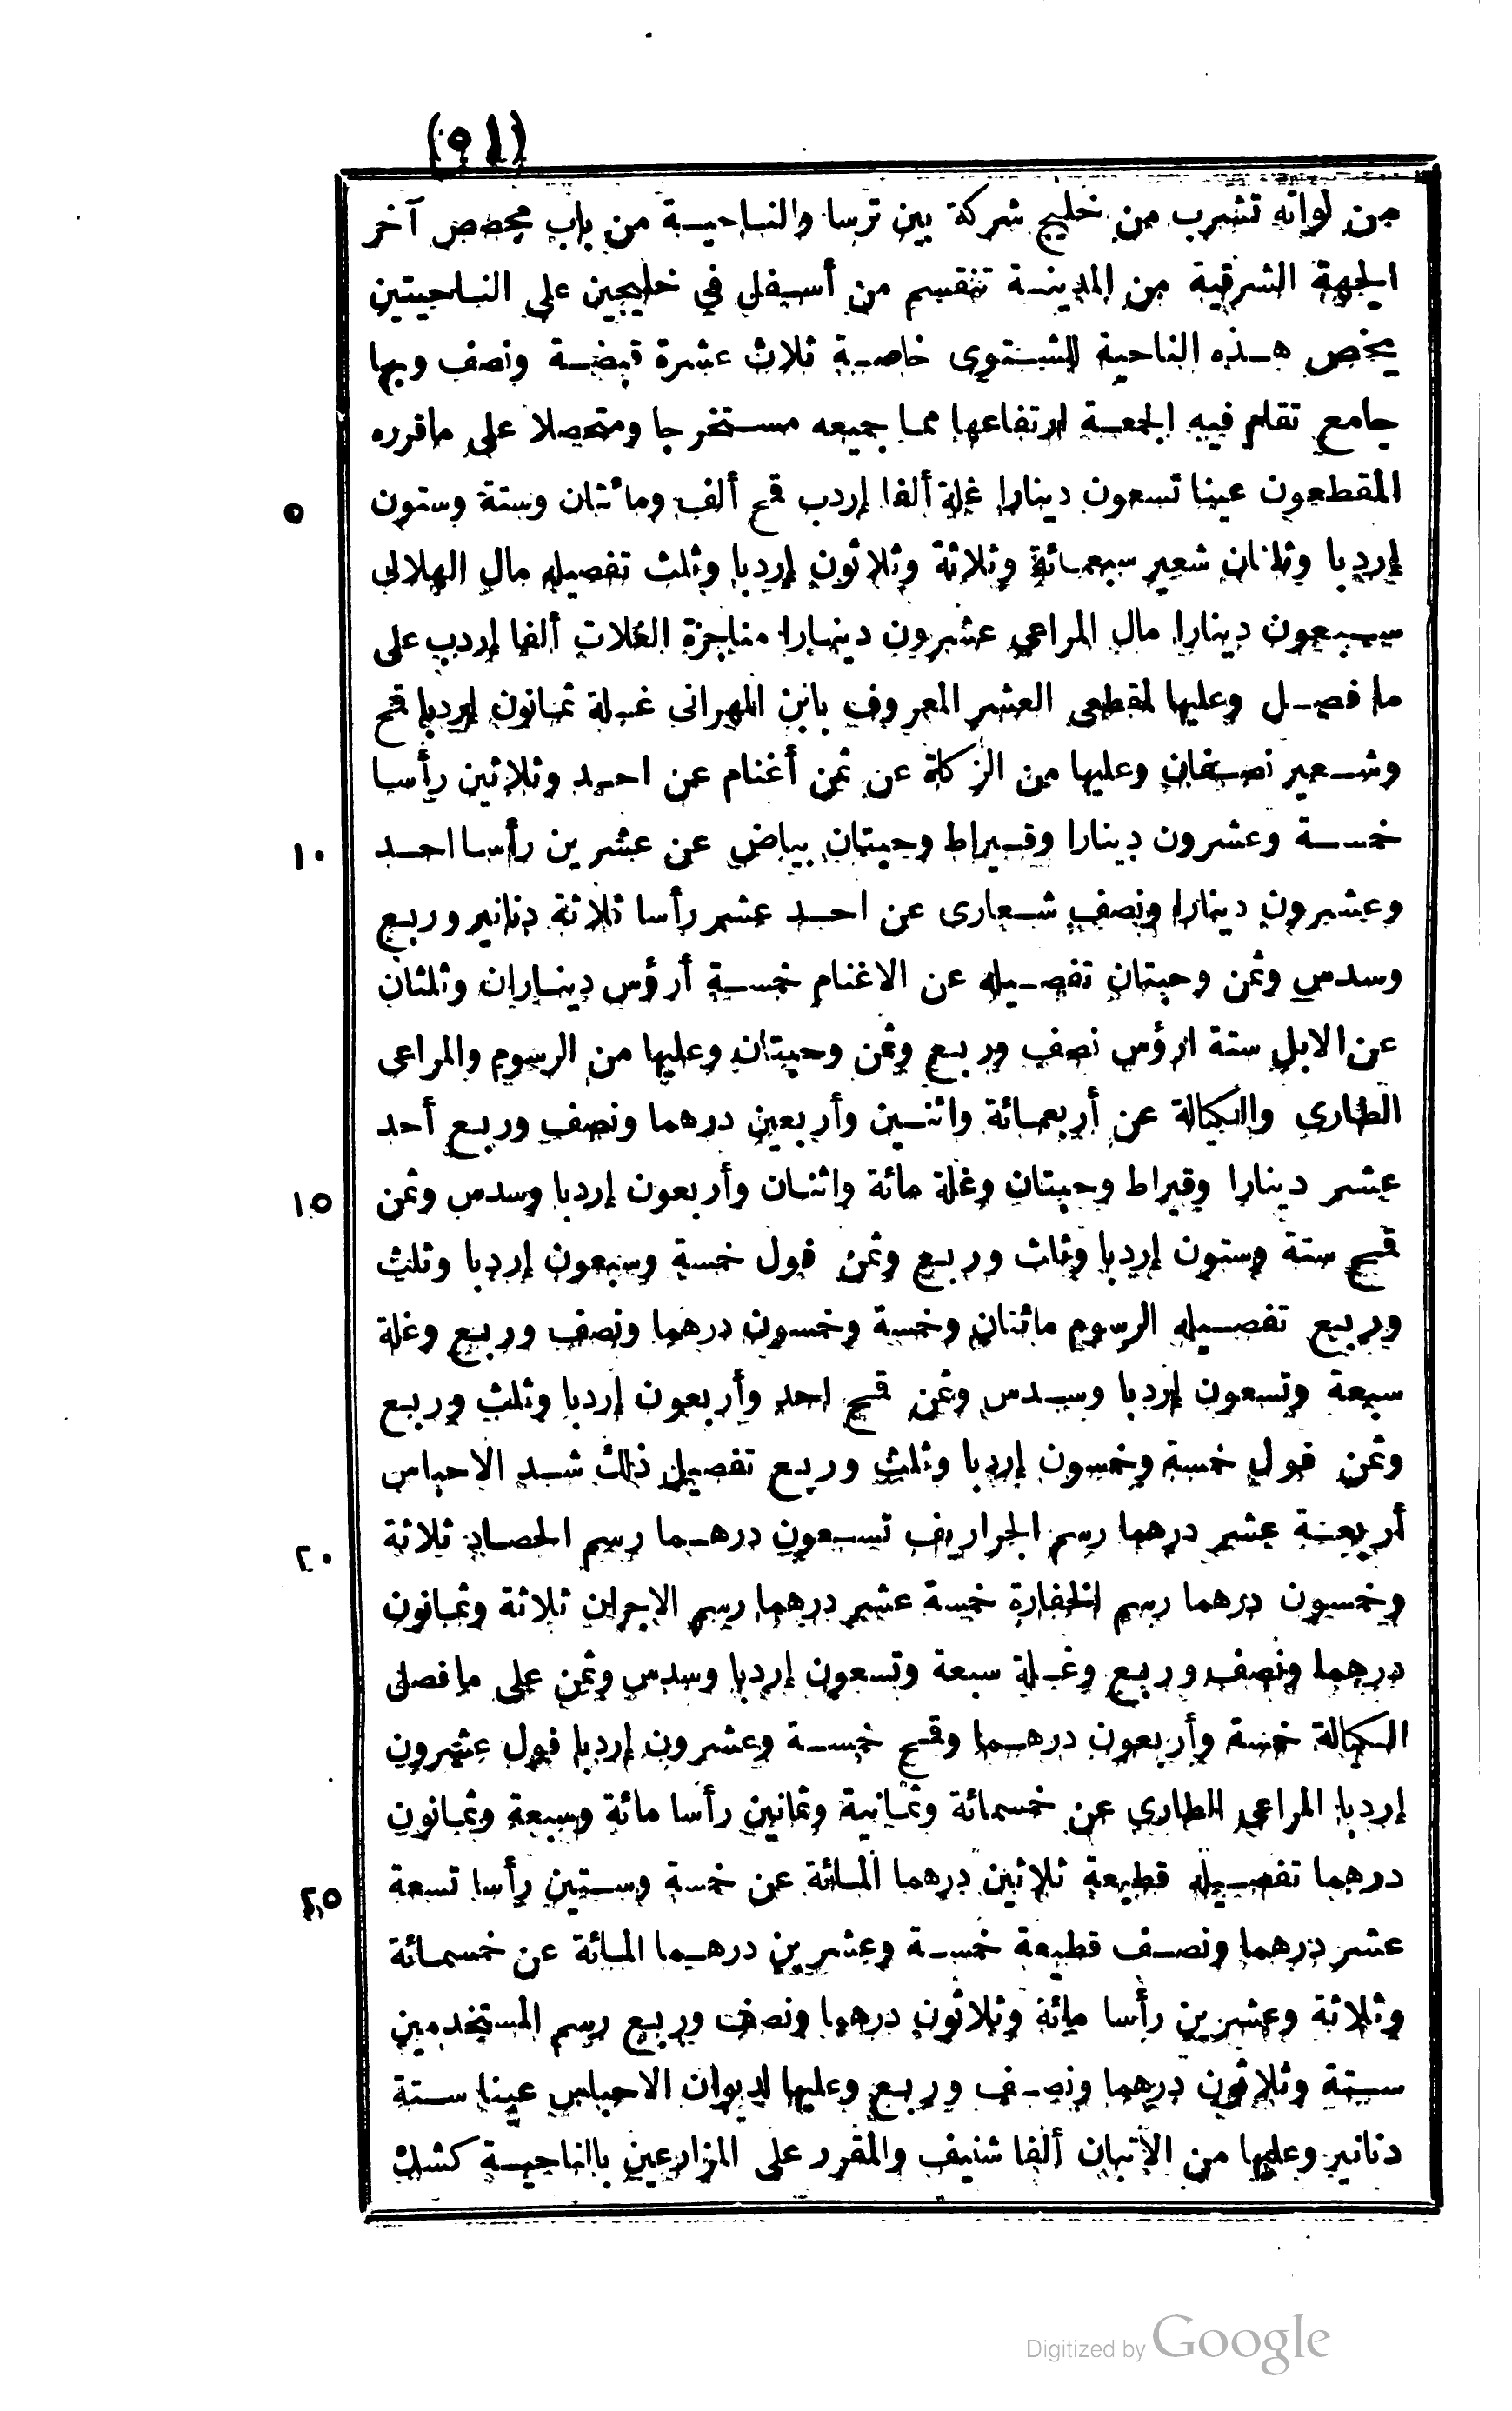 (٥١)
من لواته تشرب من خليج شركة بين ترسا والناحية من باب مجصص آخر
الجهة الشرقية من المدينة تنقسم من أسفل في خليجين على الناحيتين
يخص هذه الناحية للشتوى خاصة ثلاث عشرة قبضة ونصف وبها
جامع تقام فيه الجمعة ارتفاعها مما جميعه مستخرجا ومتحصلا على ماقرره
٥ المقطعون عينا تسعون دينارا غلة ألفا إردب قمح ألف ومائتان وستة وستون
إردبا وثلثان شعير سبعمائة وثلاثة وثلاثون إردبا وثلث تفصيله مال الهلالى
سبعون دينارا مال المراعى عشرون دينارا مناجزة الغلات ألفا إردب على
ما فصل وعليها لمقطعى العشر المعروف بابن المهرانى غلة ثمانون إردبا قمح
وشعير نصفان وعليها من الزكاة عن ثمن أغنام عن احد وثلاثين رأسا
١٠ خمسة وعشرون دينارا وقيراط وحبتان بياض عن عشرين رأسا احد
وعشرون دينارا ونصف شعارى عن احد عشر رأسا ثلاثة دنانير وربع
وسدس وثمن وحبتان تفصيله عن الاغنام خمسة أرؤس ديناران وثلثان
عن الابل ستة ارؤس نصف وربع وثمن وحبتان وعليها من الرسوم والمراعى
الطارى والكيالة عن أربعمائة واثنين وأربعين درهما ونصف وربع أحد
١٥ عشر دينارا وقيراط وحبتان وغلة مائة واثنان وأربعون إردبا وسدس وثمن
قمح ستة وستون إردبا وثلث وربع وثمن فول خمسة وسبعون إردبا وثلث
وربع تفصيله الرسوم مائتان وخمسة وخمسون درهما ونصف وربع وغلة
سبعة وتسعون إردبا وسدس وثمن قمح احد وأربعون إردبا وثلث وربع
وثمن فول خمسة وخمسون إردبا وثلث وربع تفصيل ذلك شد الاحباس
٢٠ أربعة عشر درهما رسم الجراريف تسعون درهما رسم الحصاد ثلاثة
وخمسون درهما رسم الخفارة خمسة عشر درهما رسم الاجران ثلاثة وثمانون
درهما ونصف وربع وغلة سبعة وتسعون إردبا وسدس وثمن على ما فصل
الكيالة خمسة وأربعون درهما وقمح خمسة وعشرون إردبا فول عشرون
إردبا المراعى الطارى عن خمسمائة وثمانية وثمانين رأسا مائة وسبعة وثمانون
٢٥ درهما تفصيله قطيعة ثلاثين درهما المائة عن خمسة وستين رأسا تسعة
عشر درهما ونصف قطيعة خمسة وعشرين درهما المائة عن خمسمائة
وثلاثة وعشرين رأسا مائة وثلاثون درهما ونصف وربع رسم المستخدمين
ستة وثلاثون درهما ونصف وربع وعليها لديوان الاحباس عينا ستة
دنانير وعليها من الأتبان ألفا شنيف والمقرر على المزارعين بالناحية كشك
Digitized by Google